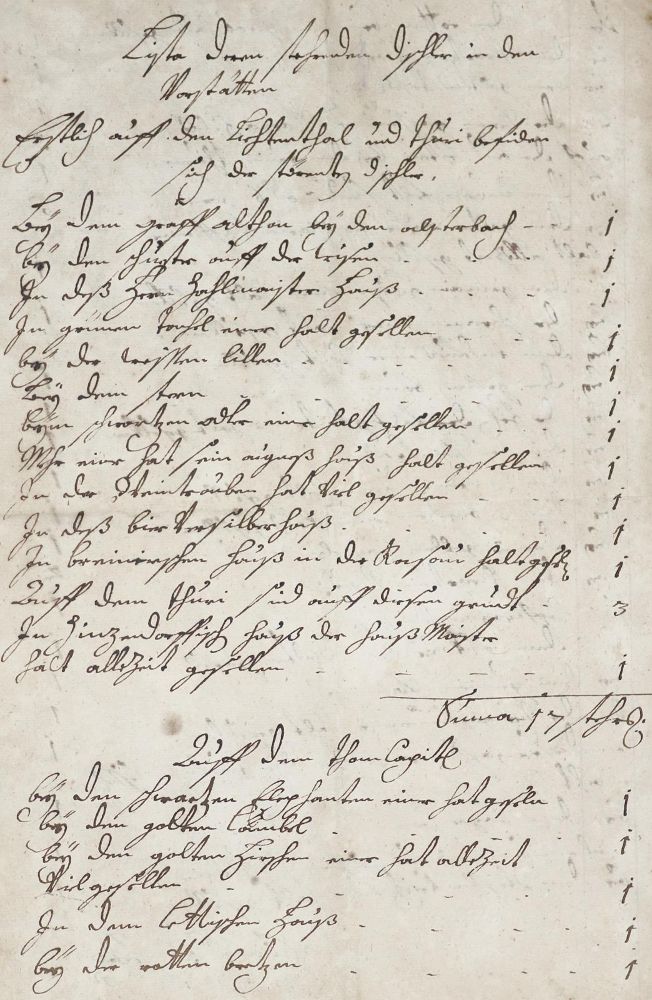 Lista deren stehrenden dischler in den
Vorstätten
Erstlich auff den Liechtenthal und Thuri befinden
sich der störenten dischler.
Beÿ dem graff althon beÿ den alsterbach - 1
beÿ den schuster auff der wisen 1
In deß Herrn Zahlmaister Hauß 1
In grienen einer halt gesellen 1
beÿ der weissen lillen 1
Beÿ dem stern 1
beym schwartzen adler einer halt gesellen 1
Mehr einer hat sein aigneß hauß halt gesellen 1
In der Weintrauben hat Viel gesellen 1
In deß bier Versilber hauß 1
In hauß in der Rosau halt gesel 1
Auff dem Thuri sind auff diesen grundt - 3
In Zinzendorffisch hauß der hauß Maister
halt allezeit gesellen 1
Suma 17 stehrer
Auff dem Thom Capitl
beÿ den schwartzen Elephanten einer hat geseln 1
beÿ den golten Lämbel 1
beÿ den golten Hirschen einer hat allezeit
Viel gesellen 1
In dem Hauß 1
beÿ der rotten bretzen 1